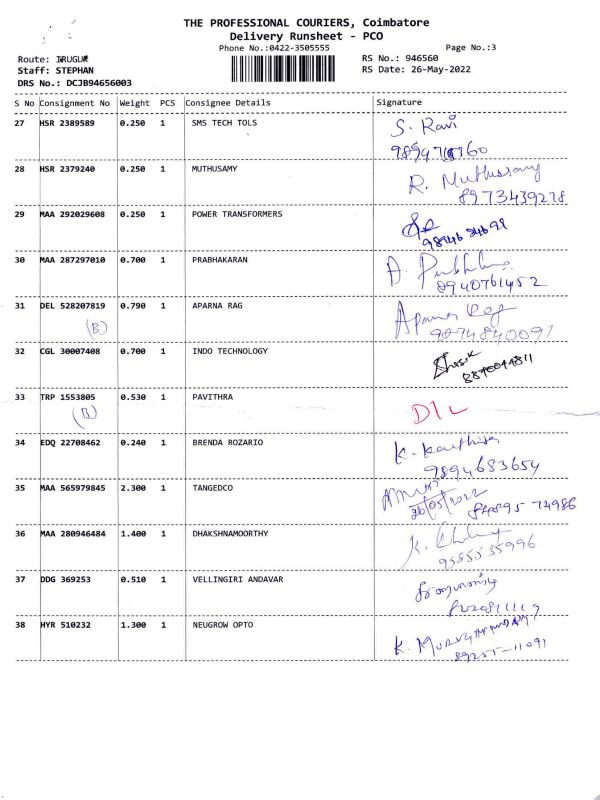 THE PROFESSIONAL COURIERS, Coimbatore
Delivery Runsheet - PCO
Phone No.:0422-3505555
Page No.:3
Route: IRUGUR
RS No.: 946560
Staff: STEPHAN
RS Date: 26-May-2022
DRS No.: DCJB94656003
S No Consignment No Weight PCS Consignee Details Signature
27 HSR 2389589 0.250 1 SMS TECH TOLS S. Ravi
28 HSR 2379240 0.250 1 MUTHUSAMY R. Muthusamy
8973439278
29 MAA 292029608 0.250 1 POWER TRANSFORMERS
30 MAA 287297010 0.700 1 PRABHAKARAN
8940761452
31 DEL 528207819 0.790 1 APARNA RAG Aparna Rag
(B) 9874840091
32 CGL 30007408 0.700 1 INDO TECHNOLOGY
33 TRP 1553805 0.530 1 PAVITHRA D/L
(B)
34 EDQ 22708462 0.240 1 BRENDA ROZARIO
9894683654
35 MAA 565979845 2.300 1 TANGEDCO
26/05/2022
36 MAA 280946484 1.400 1 DHAKSHNAMOORTHY
9585535996
37 DDG 369253 0.510 1 VELLINGIRI ANDAVAR
38 HYR 510232 1.300 1 NEUGROW OPTO
89255-11091